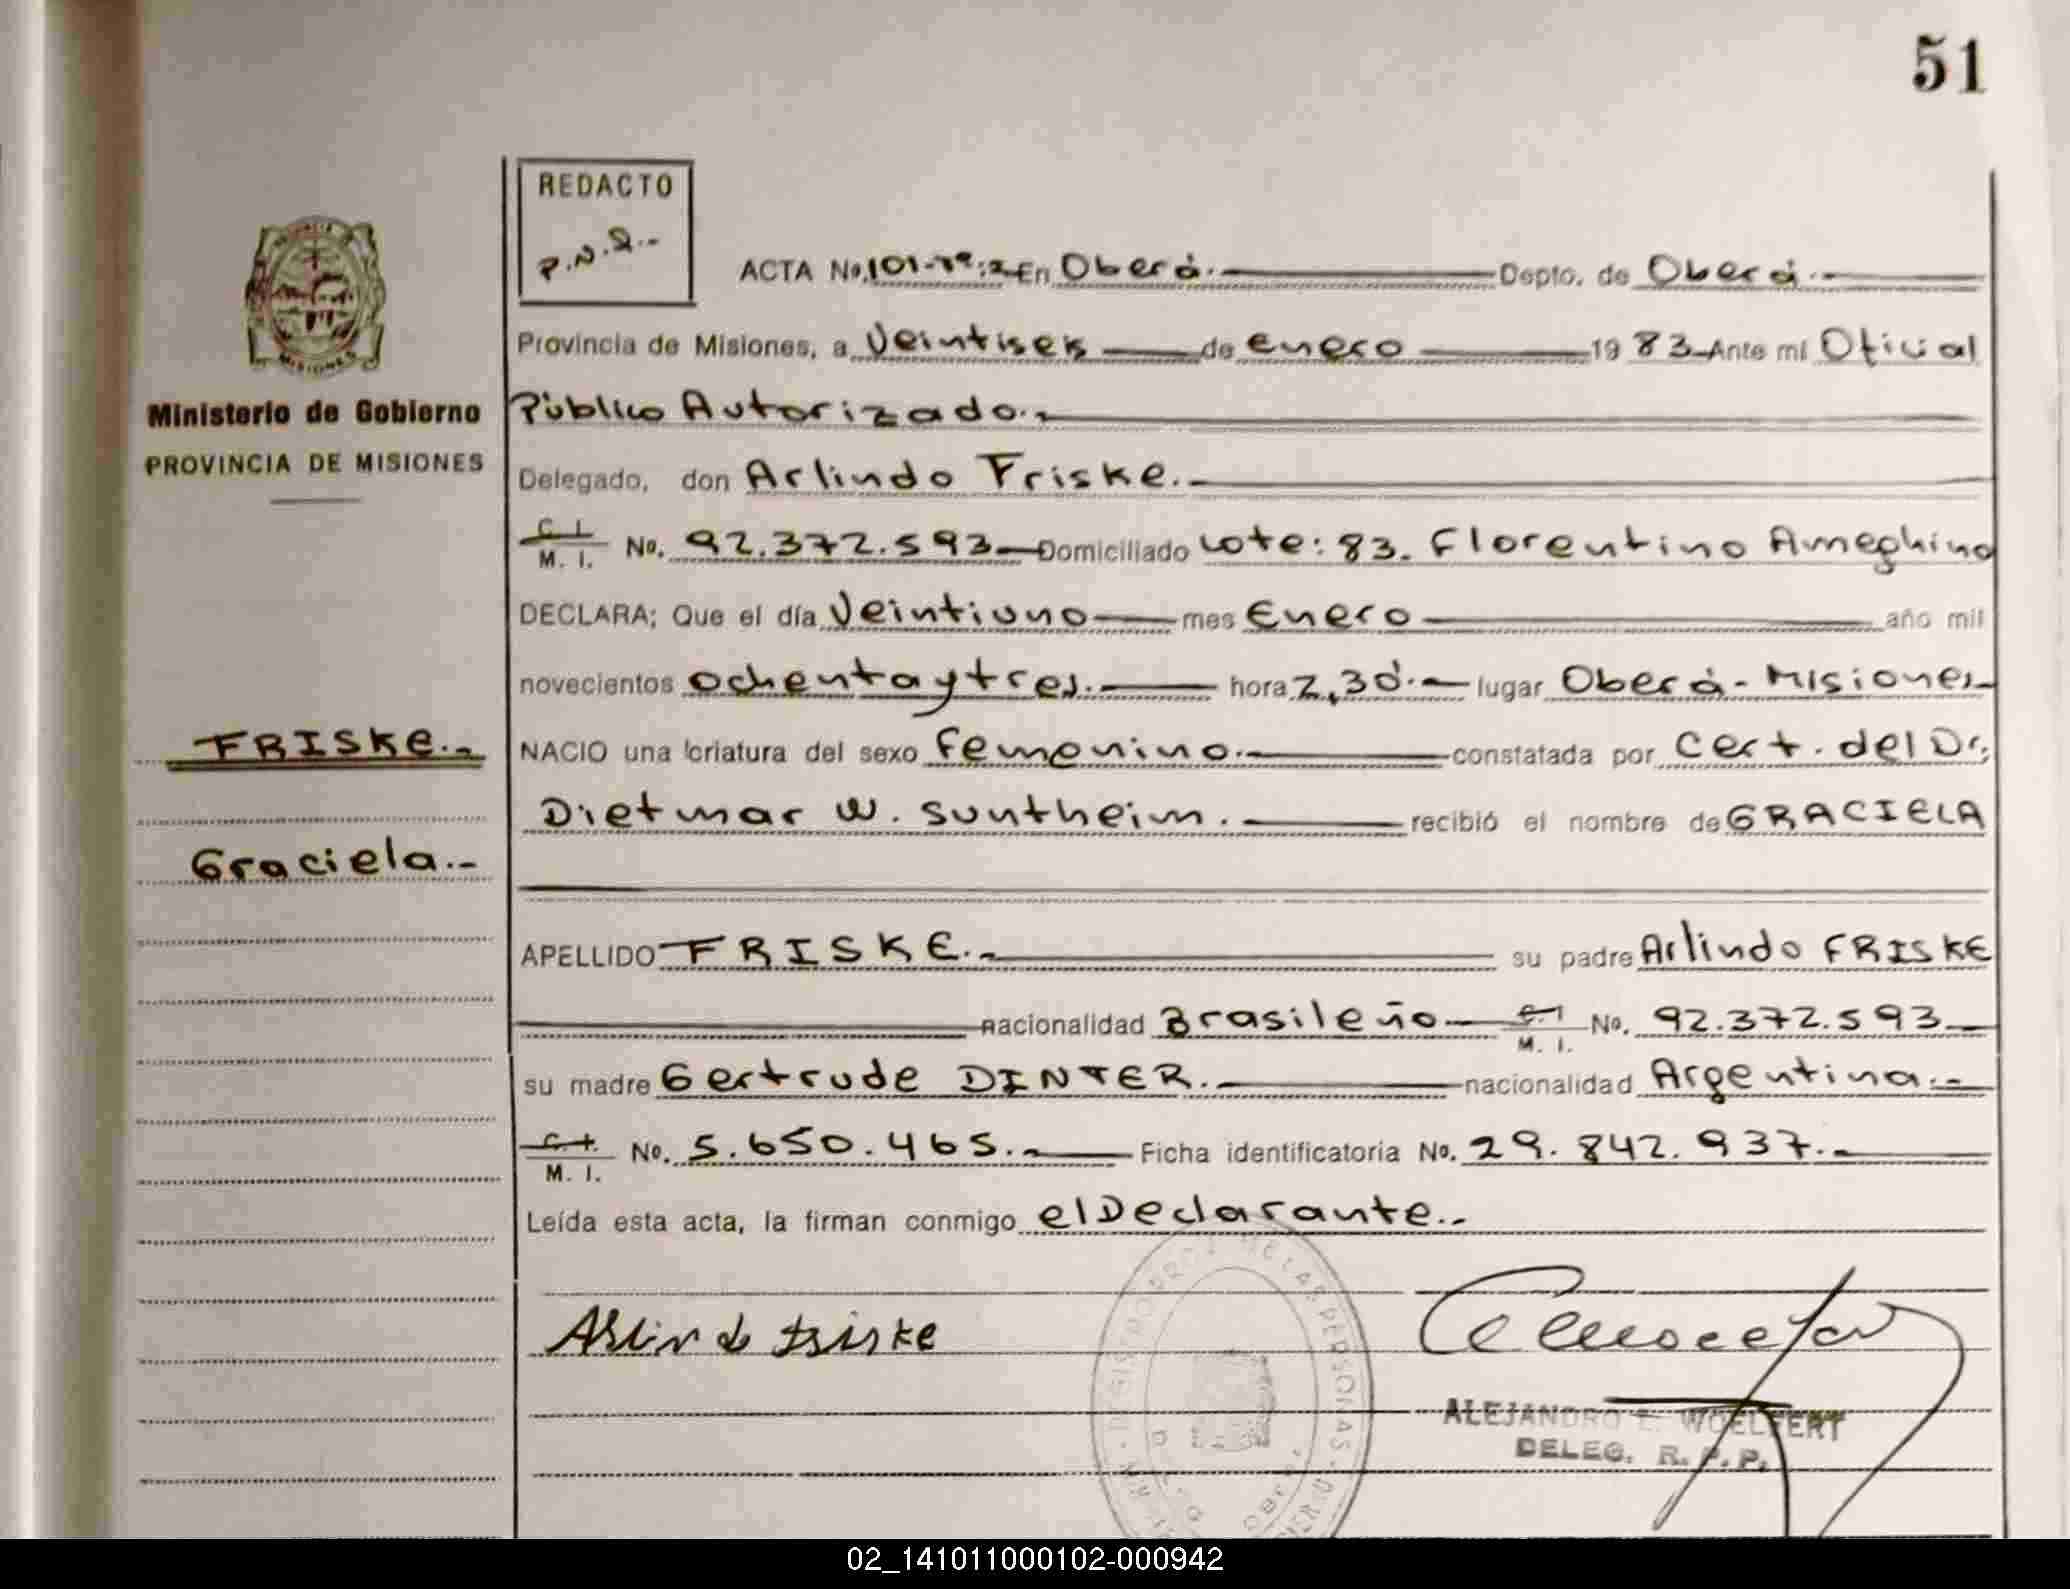 51
REDACTO
P.N.Q.-
ACTA No. 101-Tº:2- En Oberá.- Depto. de Oberá.-
Provincia de Misiones, a Veintiseis de Enero 19 83 Ante mí Oficial
Ministerio de Gobierno
Público Autorizado.-
PROVINCIA DE MISIONES
Delegado, don Arlindo Friske.-
C. I. M. I. No. 92.372.593 Domiciliado Lote: 83. Florentino Ameghino
DECLARA; Que el día Veintiuno mes Enero año mil
novecientos ochenta y tres.- hora 2,30.- lugar Oberá - Misiones
FRISKE.-
NACIO una criatura del sexo Femenino.- constatada por Cert. del Dr.
Dietmar W. Suntheim.- recibió el nombre de GRACIELA
Graciela.-
APELLIDO FRISKE.- su padre Arlindo FRISKE
nacionalidad Brasileño C. I. M. I. No. 92.372.593
su madre Gertrude DINTER.- nacionalidad Argentina.-
C. I. M. I. No. 5.650.465.- Ficha identificatoria No. 29.842.937.-
Leída esta acta, la firman conmigo el Declarante.-
Arlindo Friske
ALEJANDRO E. WOELFERT
DELEG. R. P. P.
02_141011000102-000942